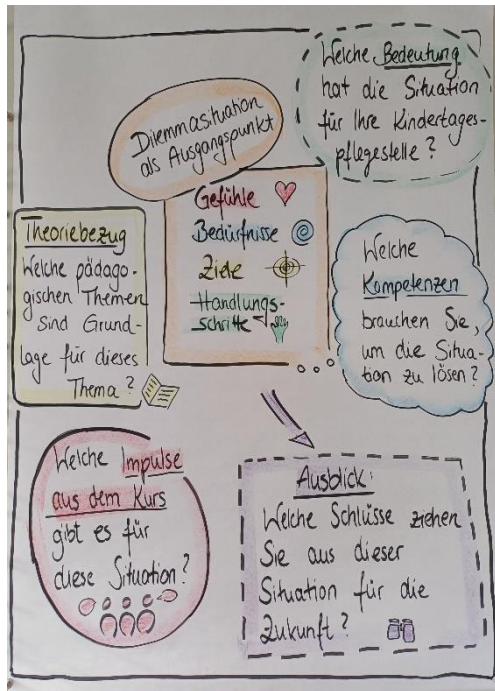 Dilemmasituation
als Ausgangspunkt
Gefühle
Bedürfnisse
Ziele
Handlungs-
schritte
Welche Bedeutung
hat die Situation
für Ihre Kindertages-
pflegestelle?
Theoriebezug
Welche pädago-
gischen Themen
sind Grund-
lage für dieses
Thema?
Welche
Kompetenzen
brauchen Sie,
um die Situa-
tion zu lösen?
Welche Impulse
aus dem Kurs
gibt es für
diese Situation?
Ausblick:
Welche Schlüsse ziehen
Sie aus dieser
Situation für die
Zukunft?